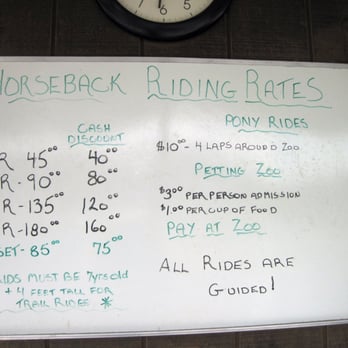 HORSEBACK RIDING RATES
CASH
DISCOUNT
R 45⁰⁰ 40⁰⁰
R - 90⁰⁰ 80⁰⁰
R - 135⁰⁰ 120⁰⁰
R - 180⁰⁰ 160⁰⁰
SET - 85⁰⁰ 75⁰⁰
KIDS MUST BE 7yrs old
+ 4 FEET TALL FOR
TRAIL RIDES *
PONY RIDES
$10⁰⁰ - 4 LAPS AROUND ZOO
PETTING ZOO
$3⁰⁰ PER PERSON ADMISSION
$1.00 PER CUP OF FOOD
PAY AT ZOO
ALL RIDES ARE
GUIDED!